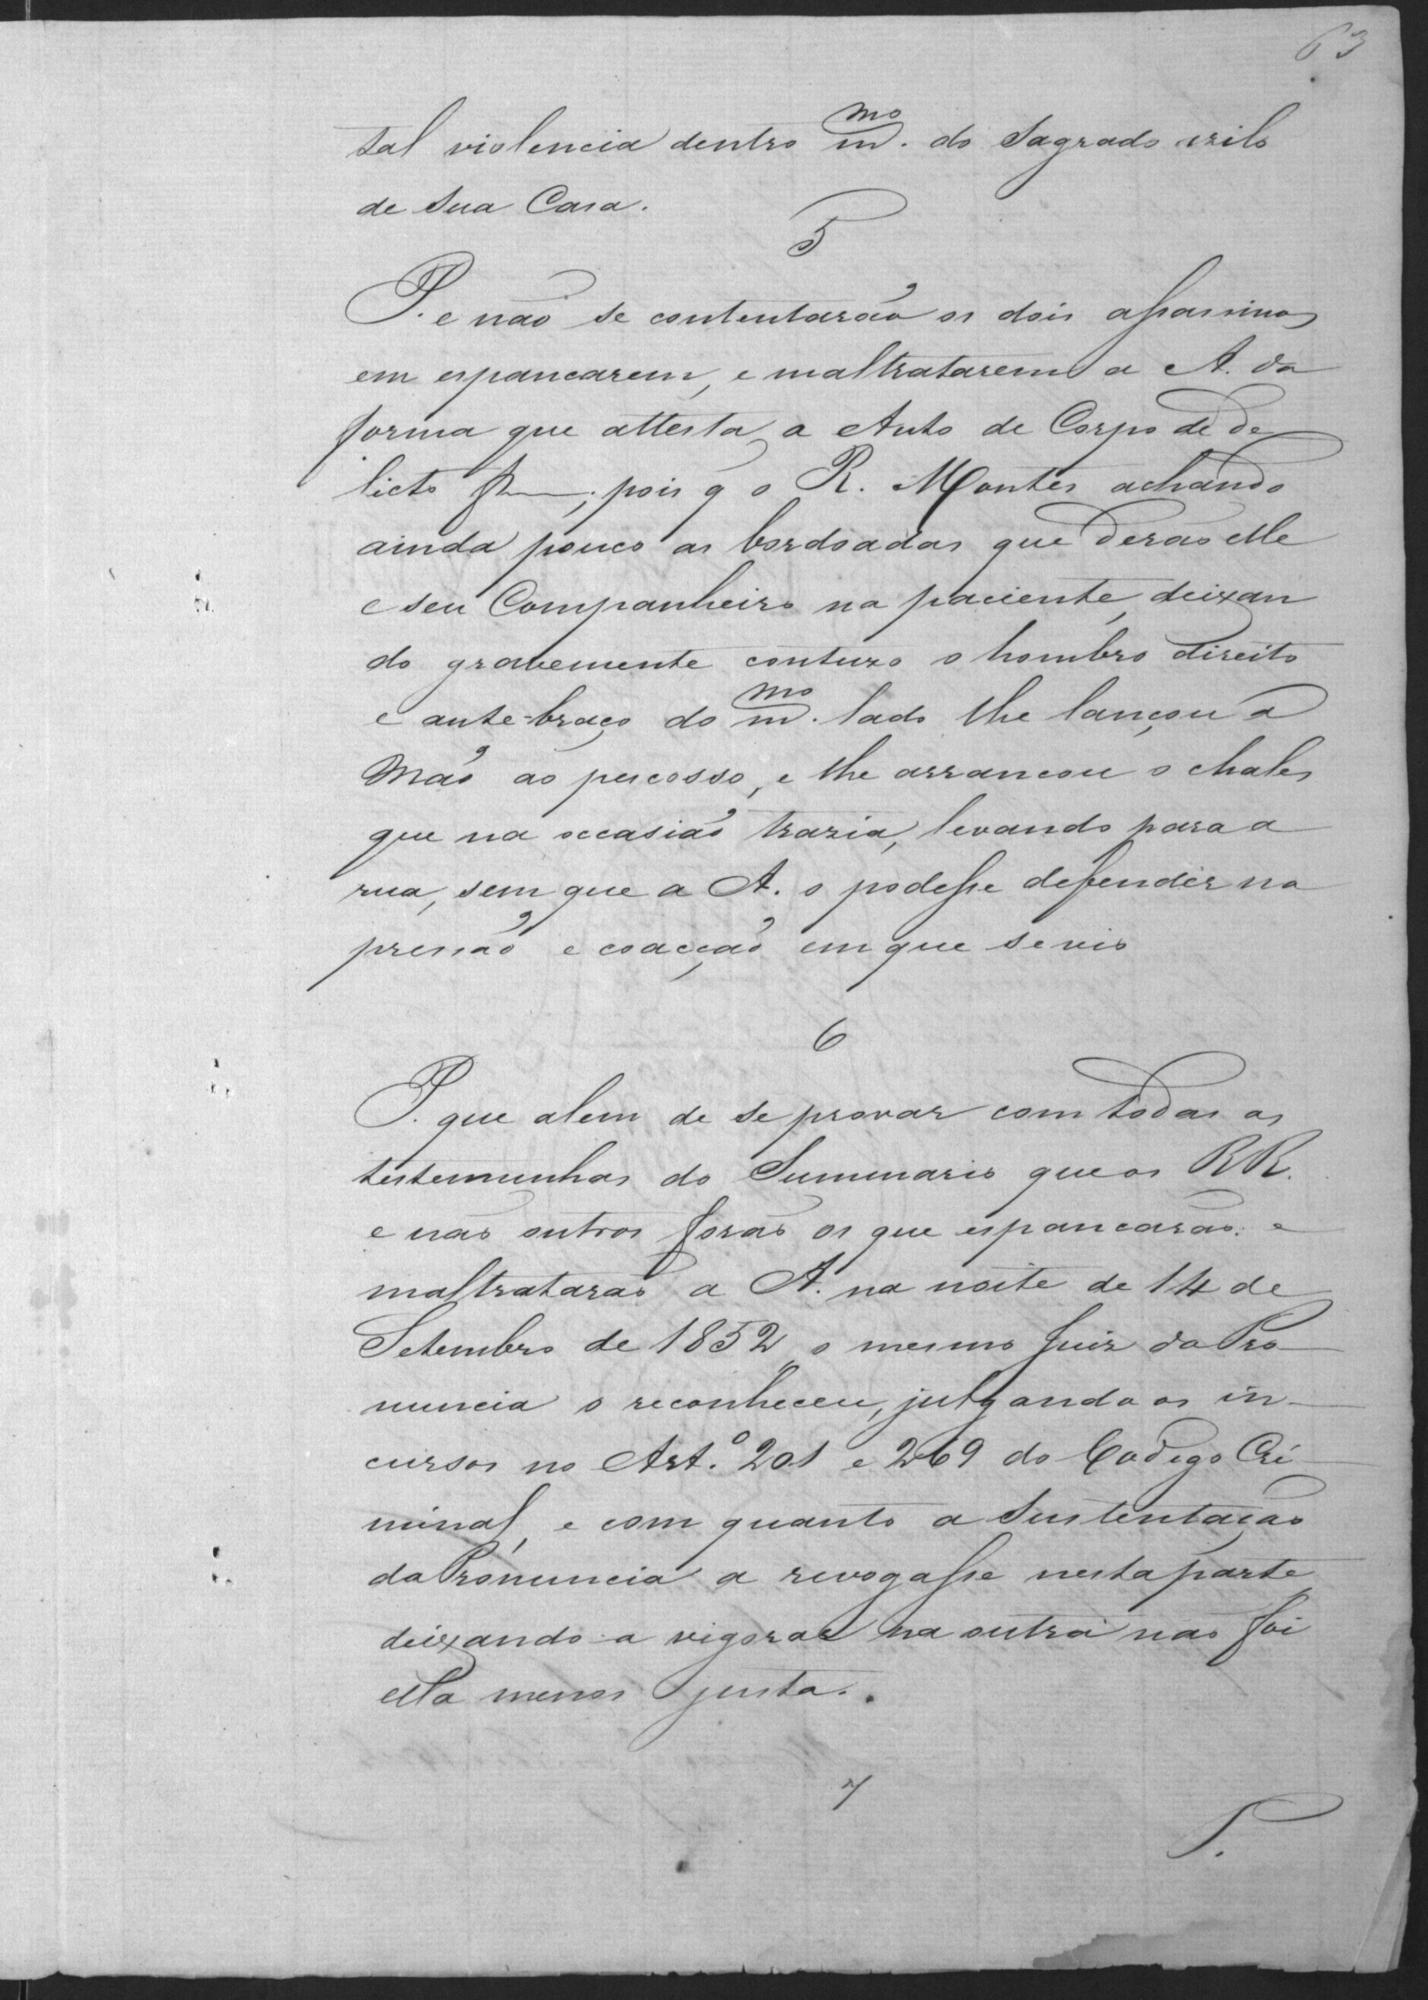 63
tal violencia dentro m.mo do Sagrado azilo
de sua Casa.
5
P. e não se contentarão os dois assassinos
em espancarem, e maltratarem a A. da
forma que attesta, a Auto de Corpo de de
licto f ; pois q o R. Montes achando
ainda pouco as bordoadas que derão elle
e seu Companheiro na paciente, deixan
do gravemente contuzo o hombro direito
e ante-braço do m.mo lado lhe lançou a
mão ao pescosso, e lhe arrancou o chales
que na occasião trazia, levando para a
rua, sem que a A. o podesse defender na
pressão e coacção em que se vio
6
P. que alem de se provar com todas as
testemunhas do Summario que os RR.
e não outros forão os que espancarão e
maltratarão a A. na noite de 14 de
Setembro de 1852, o mesmo Juiz da Pro
nuncia o reconheceu, julgando os in-
cursos no Art.o 201 e 269 do Codigo Cri
minal, e com quanto a Sustentação
da Pronuncia a revogasse nesta parte
deixando-a vigorar na outra não foi
ella menos justa.
7
P.